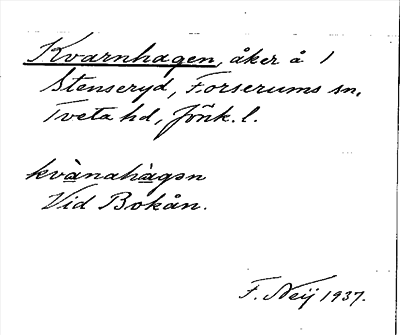 Kvarnhagen, åker å 1
Stenseryd, Forserums sn,
Tveta hd, Jönk. l.
kvànahàgən
Vid Bokån.
F. Neij 1937.